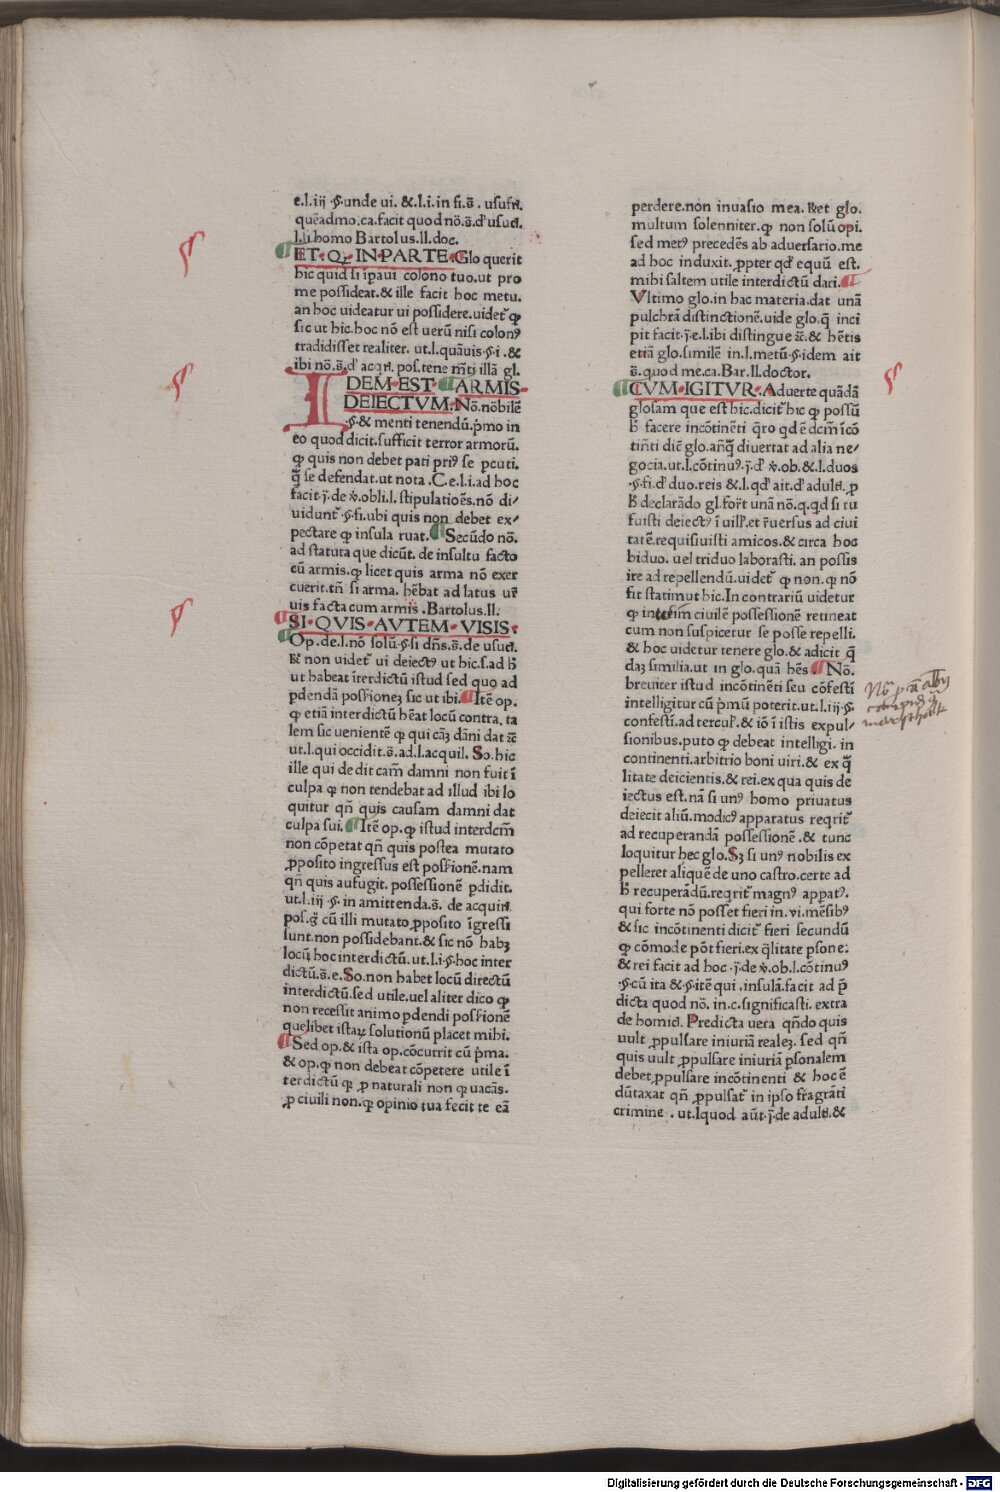 e.l.iij ·§·unde ui. &.l.i.in fi.s̄. usufrū.
quēadmo.ca.facit quod nō.s̄.d' usuci.
l.li homo Bartolus.ll.doc.
ET·Q·IN·PARTE·Glo querit
hic quid si ipaui colono tuo.ut pro
me possideat.& ille facit hoc metu.
an hoc uideatur ui possidere.uidetꝰ ꝙ
sic ut hic.hoc nō est uerū nisi colonꝰ
tradidisset realiter. ut.l.quāuis·§·i .&
ibi nō.s̄.d' acqrī. pos.tene mēti illā gl.
IDEM·EST·ARMIS·
DEIECTVM·Nō.nōbilē
·§·& menti tenendū.p̄mo in
eo quod dicit.sufficit terror armorū.
ꝙ quis non debet pati priꝰ se pcuti.
q̄ se defendat.ut nota .C e.l.i.ad hoc
facit·j̄·de v̄.obli.l.stipulatiōes.nō di/
uidunt᷑·§·fi.ubi quis non debet ex/
pectare ꝙ insula ruat. Secūdo nō.
ad statuta que dicūt. de insultu facto
cū armis.ꝙ licet quis arma nō exer
cuerit.tn̄ si arma. hēbat ad latus ur̄
uis facta cum armis .Bartolus.ll.
SI·QVIS·AVTEM·VISIS·
Op.de.l.nō solū·§·si dn̄s.s̄.de usuci.
non uidet᷑ ui deiectꝰ ut hic.s.ad h̄
ut habeat īterdictū istud sed quo ad
pdendā possionez sic ut ibi. Itē op.
ꝙ etiā interdictū hēat locū contra. ta
lem sic uenientē ꝙ qui cāz dāni dat
ut.l.qui occidit.s̄.ad.l.acquil. So.hic
ille qui dedit cām damni non fuit ī
culpa ꝙ non tendebat ad illud ibi lo
quitur qn̄ quis causam damni dat
culpa sui. Itē op.ꝙ istud interdcm̄
non cōpetat qn̄ quis postea mutato
ꝓposito ingressus est possionē.nam
qn̄ quis aufugit. possessionē pdidit.
ut.l.iij ·§·in amittenda.s̄. de acquirī.
pos.q̄ cū illi mutato ꝓposito īgressi
sunt.non possidebant.& sic nō habꝫ
locū hoc interdictū.ut.l.i·§·hoc inter
dictū.s̄.e.So.non habet locū directū
interdictū.sed utile.uel aliter dico ꝙ
non recessit animo pdendi possionē
quelibet istaꝝ solutionū placet mihi.
Sed op.& ista op.cōcurrit cū p̄ma.
& op.ꝙ non debeat cōpetere utile ī
terdictū ꝙ ꝓ naturali non ꝙ uacās.
ꝓ ciuili non.ꝙ opinio tua fecit te eā
perdere.non inuasio mea. Ret glo.
multum solenniter.ꝙ non solū opi.
sed metꝰ precedēs ab aduersario.me
ad hoc induxit.ꝓpter qd' equū est.
mihi saltem utile interdictū dari.
Vltimo glo.in hac materia.dat unā
pulchrā distinctionē.uide glo.q̄ inci
pit facit·j̄·e.l.ibi distingue &.& hētis
etiā glo.similē in.l.metū·§·idem ait
s̄.quod me.ca.Bar.ll.doctor.
CVM·IGITVR·Aduerte quādā
glosam que est hic.dicit᷑ hic ꝙ possū
h̄ facere incōtinēti q̄ro qd ē dcm̄ icō
tin̄ti diē glo.añq̄ diuertat ad alia ne/
gocia.ut.l.cōtinuꝰ·j̄·d' v̄.ob.&.l.duos
·§·fi.d' duo.reis &.l.qd' ait.d' adulti. ꝓ
h̄ declarādo gl.for̄t unā nō.q.qd si tu
fuisti deiectꝰ ī uill'.et r̄uersus ad ciui
tatē.requisiuisti amicos.& circa hoc
biduo. uel triduo laborasti. an possis
ire ad repellendū.uidet᷑ ꝙ non.ꝙ nō
fit statim ut hic.In contrariū uidetur
ꝙ interim ciuilē possessionē retineat
cum non suspicetur se posse repelli.
& hoc uidetur tenere glo.& adicit q̄
daꝫ similia.ut in glo.quā hēs Nō.
breuiter istud incōtinēti seu cōfesti
intelligitur cū p̄mū poterit.ut.l.iij·§·
confesti.ad tercul'.& iō ī istis expul/
sionibus.puto ꝙ debeat intelligi. in
continenti.arbitrio boni uiri.& ex q̄
litate deicientis.& rei.ex qua quis de
iectus est.nā si unꝰ homo priuatus
deiecit aliū.modicꝰ apparatus reqrit᷑
ad recuperandā possessionē .& tunc
loquitur hec glo.Sꝫ si unꝰ nobilis ex
pelleret aliquē de uno castro.certe ad
h̄ recuperādū.reqrit᷑ magnꝰ appatꝰ.
qui forte nō posset fieri in.vi.mēsibꝰ
& sic incōtinenti dicit᷑ fieri secundū
ꝙ cōmode pōt fieri.ex q̄litate psone:
& rei facit ad hoc ·j̄·de v̄.ob.l.cōtinuꝰ
·§·cū ita &·§·itē qui .insulā.facit ad p̄
dicta quod nō. in.c.significasti. extra
de homici. Predicta uera qn̄do quis
uult ꝓpulsare iniuriā realeꝫ. sed qn̄
quis uult ꝓpulsare iniuriā psonalem
debet ꝓpulsare incōtinenti & hoc ē
dūtaxat qn̄ ꝓpulsat᷑ in ipso fragrāti
crimine . ut.l.quod aūt·j̄·de adulti.&
Digitalisierung gefördert durch die Deutsche Forschungsgemeinschaft - DFG